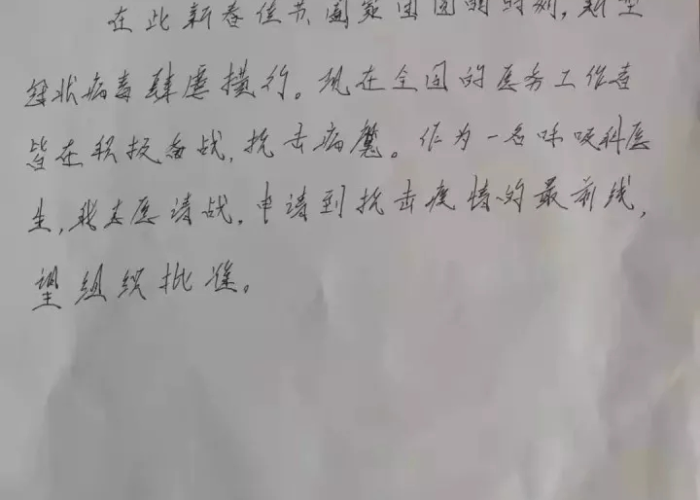 在此新春佳节,阖家团圆的时刻,新型
冠状病毒肆虐横行。现在全国的医务工作者
皆在积极备战,抗击病魔。作为一名呼吸科医
生,我志愿请战,申请到抗击疫情的最前线,
望组织批准。